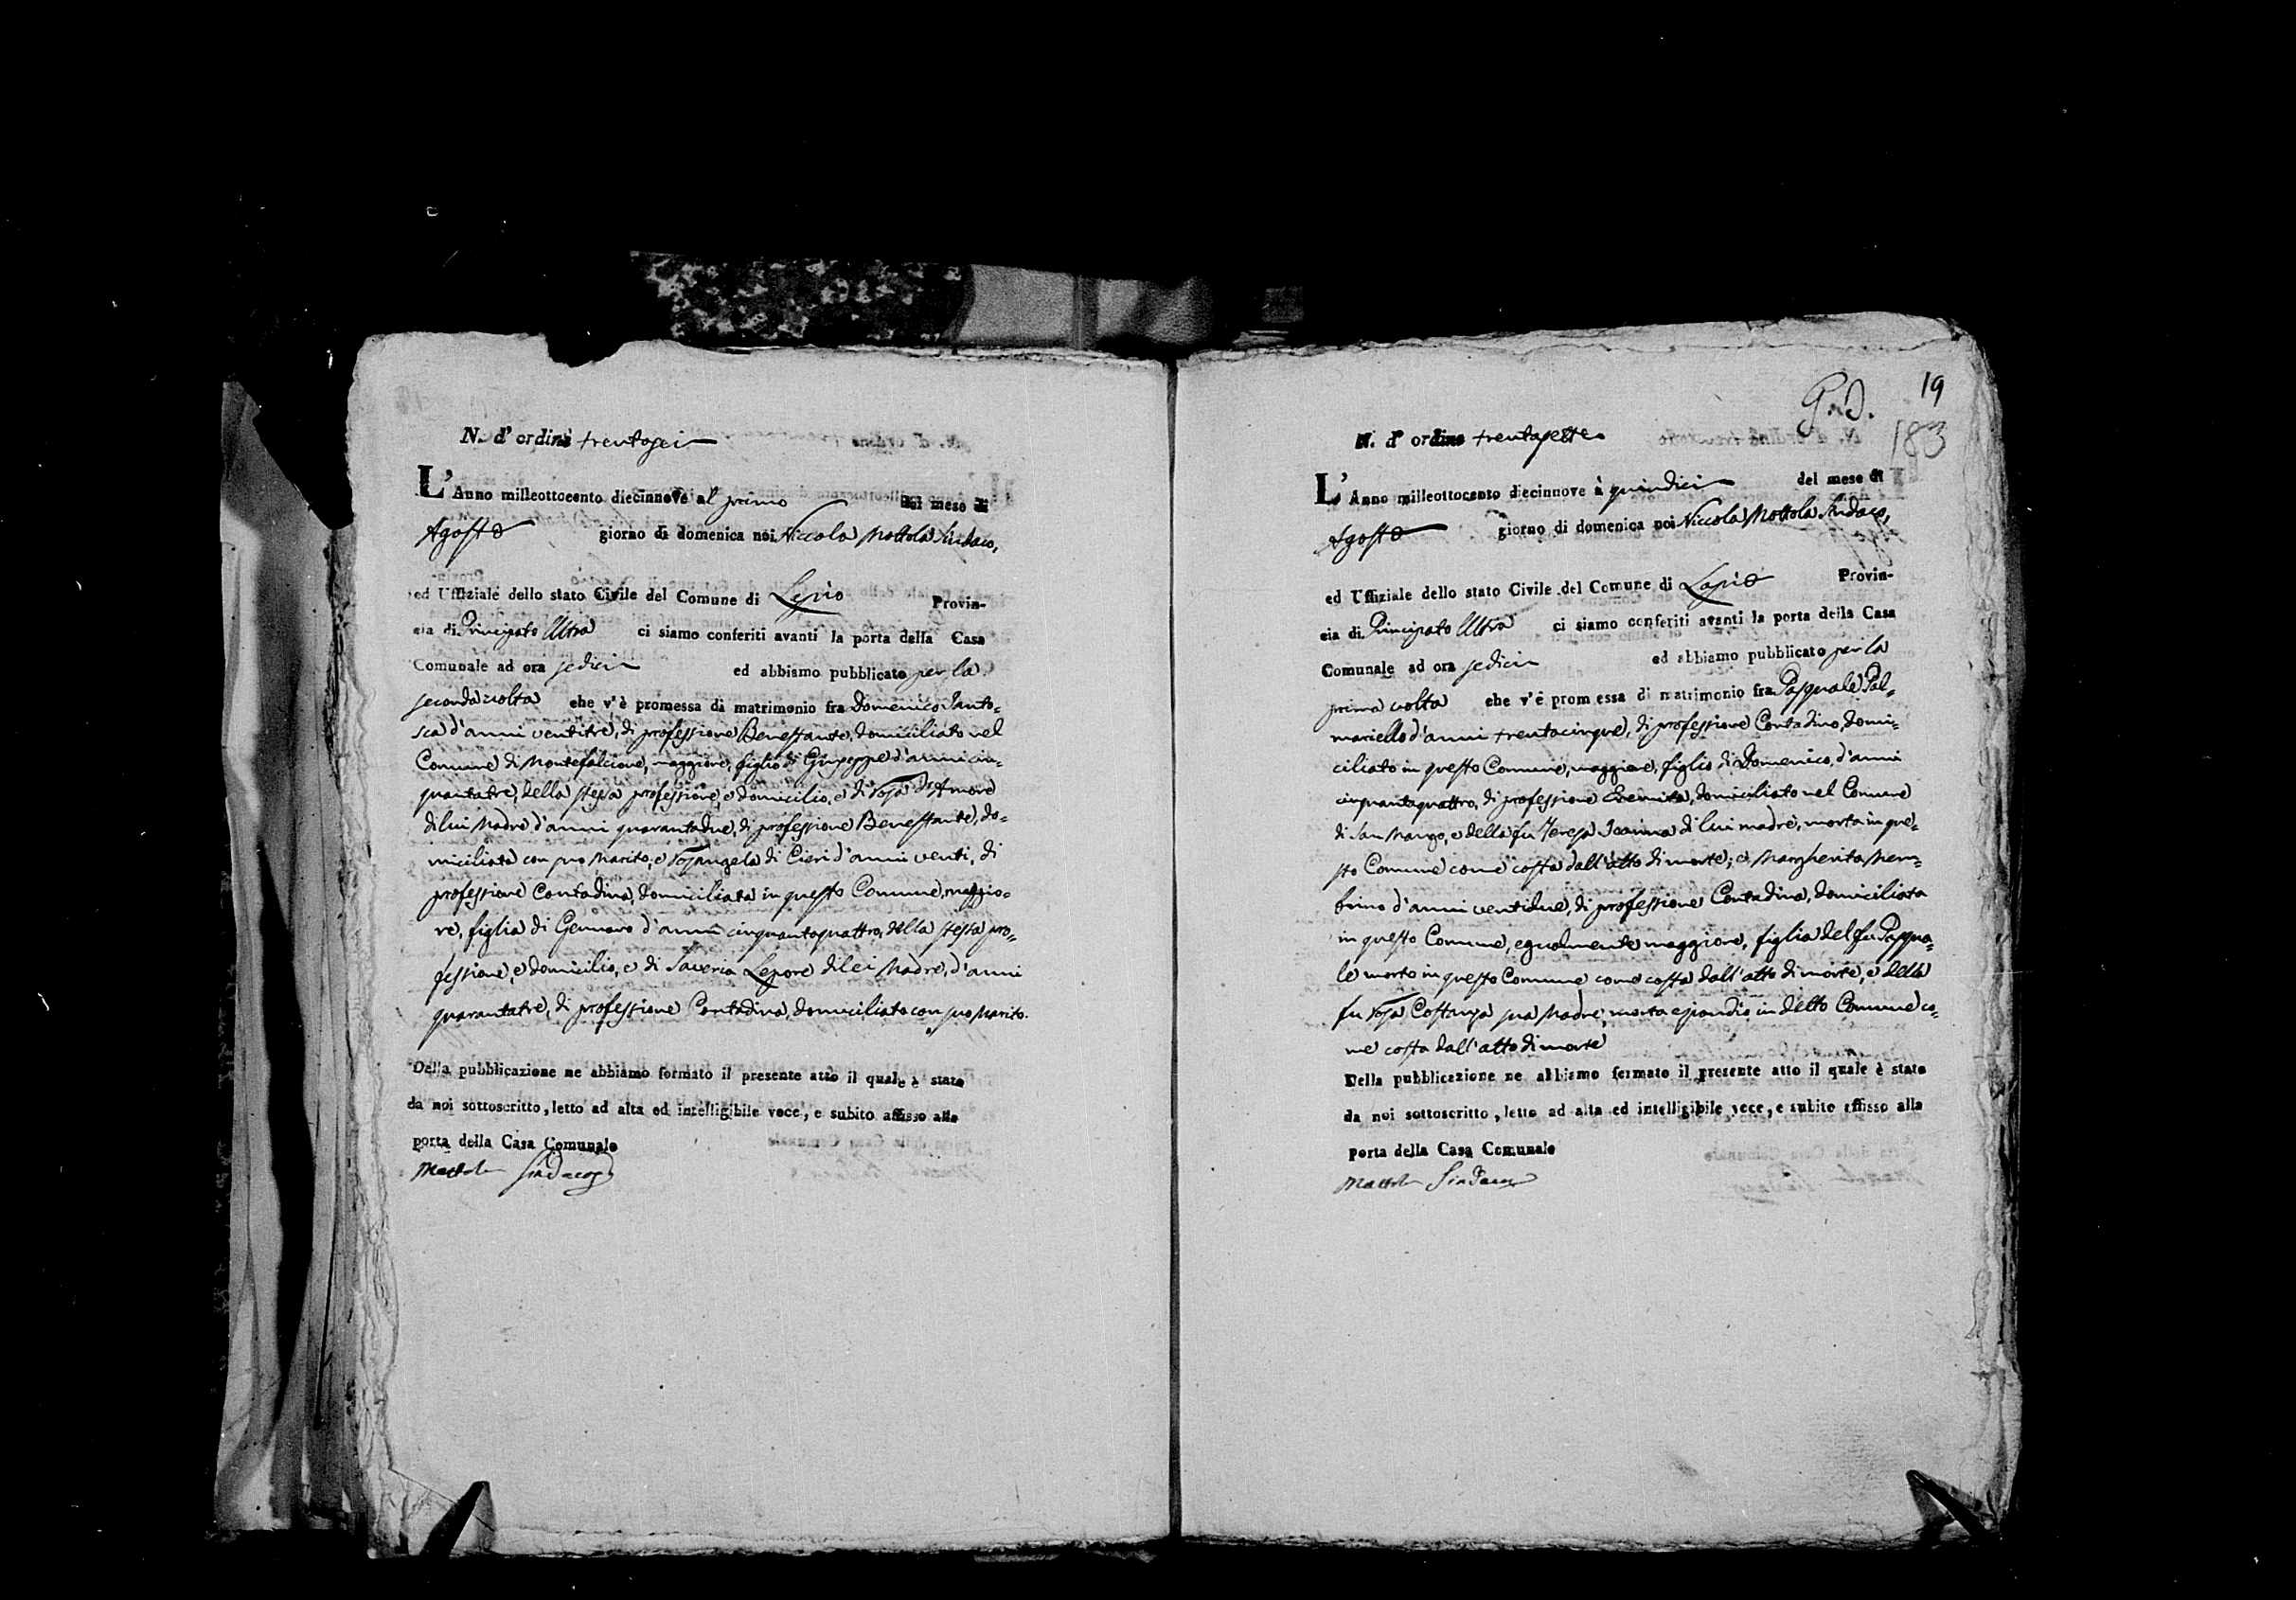 N. d' ordine trentasei
L' Anno milleottocento diecinnove al primo del mese di
Agosto giorno di domenica noi Niccola Mottola Sindaco,
ed Uffiziale dello stato Civile del Comune di Lapio Provin-
cia di Principato Ultra ci siamo conferiti avanti la porta della Casa
Comunale ad ora sedici ed abbiamo pubblicato per la
seconda volta che v'è promessa di matrimonio fra Domenico Santo=
sca d'anni ventitrè, di professione Benestante, domiciliato nel
Comune di Montefalcione, maggiore, figlio di Giuseppe d'anni cin=
quantatre, della stessa professione, e domicilio, e di Rosa d'Amore
di lui Madre d'anni quarantadue, di professione Benestante, do=
miciliata con suo Marito, e Rosangela di Cieri d'anni venti, di
professione Contadina, domiciliata in questo Comune, maggio=
re, figlia di Gennaro d'anni cinquantaquattro, della stessa pro=
fessione, e domicilio, e di Saveria Lepore di lei Madre, d'anni
quarantatre, di professione Contadina, domiciliato con suo Marito.
Della pubblicazione ne abbiamo formato il presente atto il quale è stato
da noi sottoscritto, letto ad alta ed intelligibile voce, e subito affisso alla
porta della Casa Comunale
Mottola Sindaco
19
183
N. d' ordine trentasette
L' Anno milleottocento diecinnove à quindici del mese di
Agosto giorno di domenica noi Niccola Mottola Sindaco,
ed Uffiziale dello stato Civile del Comune di Lapio Provin-
cia di Principato Ultra ci siamo conferiti avanti la porta della Casa
Comunale ad ora sedici ed abbiamo pubblicato per la
prima volta che v'è promessa di matrimonio fra Pasquale Pal=
mariello d'anni trentacinque, di professione Contadino, domi=
ciliato in questo Comune, maggiore, figlio di Domenico, d'anni
cinquantaquattro, di professione Eremita, domiciliato nel Comune
di San Mango, e della fu Teresa Ioanna di lui madre, morta in que=
sto Comune come costa dall'atto di morte; e Margherita Mem=
brino d'anni ventidue, di professione Contadina, domiciliata
in questo Comune, egualmente maggiore, figlia del fu Pasqua=
le morto in questo Comune come costa dall'atto di morte, e della
fu Rosa Costanza sua Madre, morta eziandio in detto Comune co=
me costa dall'atto di morte
Della pubblicazione ne abbiamo formato il presente atto il quale è stato
da noi sottoscritto, letto ad alta ed intelligibile voce, e subito affisso alla
porta della Casa Comunale
Mottola Sindaco